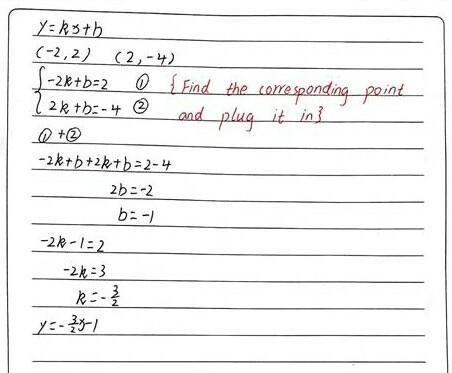 y=kx+b
(-2,2) (2,-4)
{-2k+b=2 ① {Find the corresponding point
2k+b=-4 ② and plug it in}
①+②
-2k+b+2k+b=2-4
2b=-2
b=-1
-2k-1=2
-2k=3
k=-3/2
y=-3/2x-1